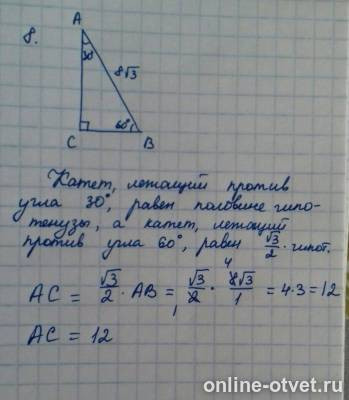 8.
A
30°
8√3
60°
C
B
Катет, лежащий против
угла 30°, равен половине гипо-
тенузы, а катет, лежащий
против угла 60°, равен √3/2 · гипот.
AC = √3/2 · AB = √3/2 · 8√3/1 = 4·3 = 12
1 4
AC = 12
online-otvet.ru